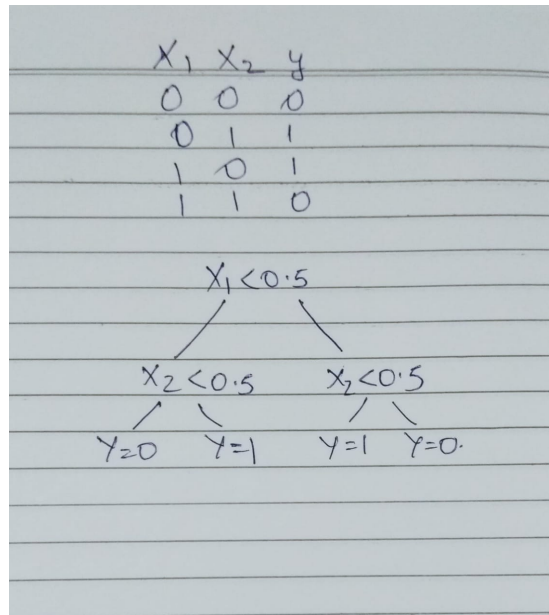 X₁ X₂ y
0 0 0
0 1 1
1 0 1
1 1 0
X₁<0.5
X₂<0.5 X₂<0.5
Y=0 Y=1 Y=1 Y=0.